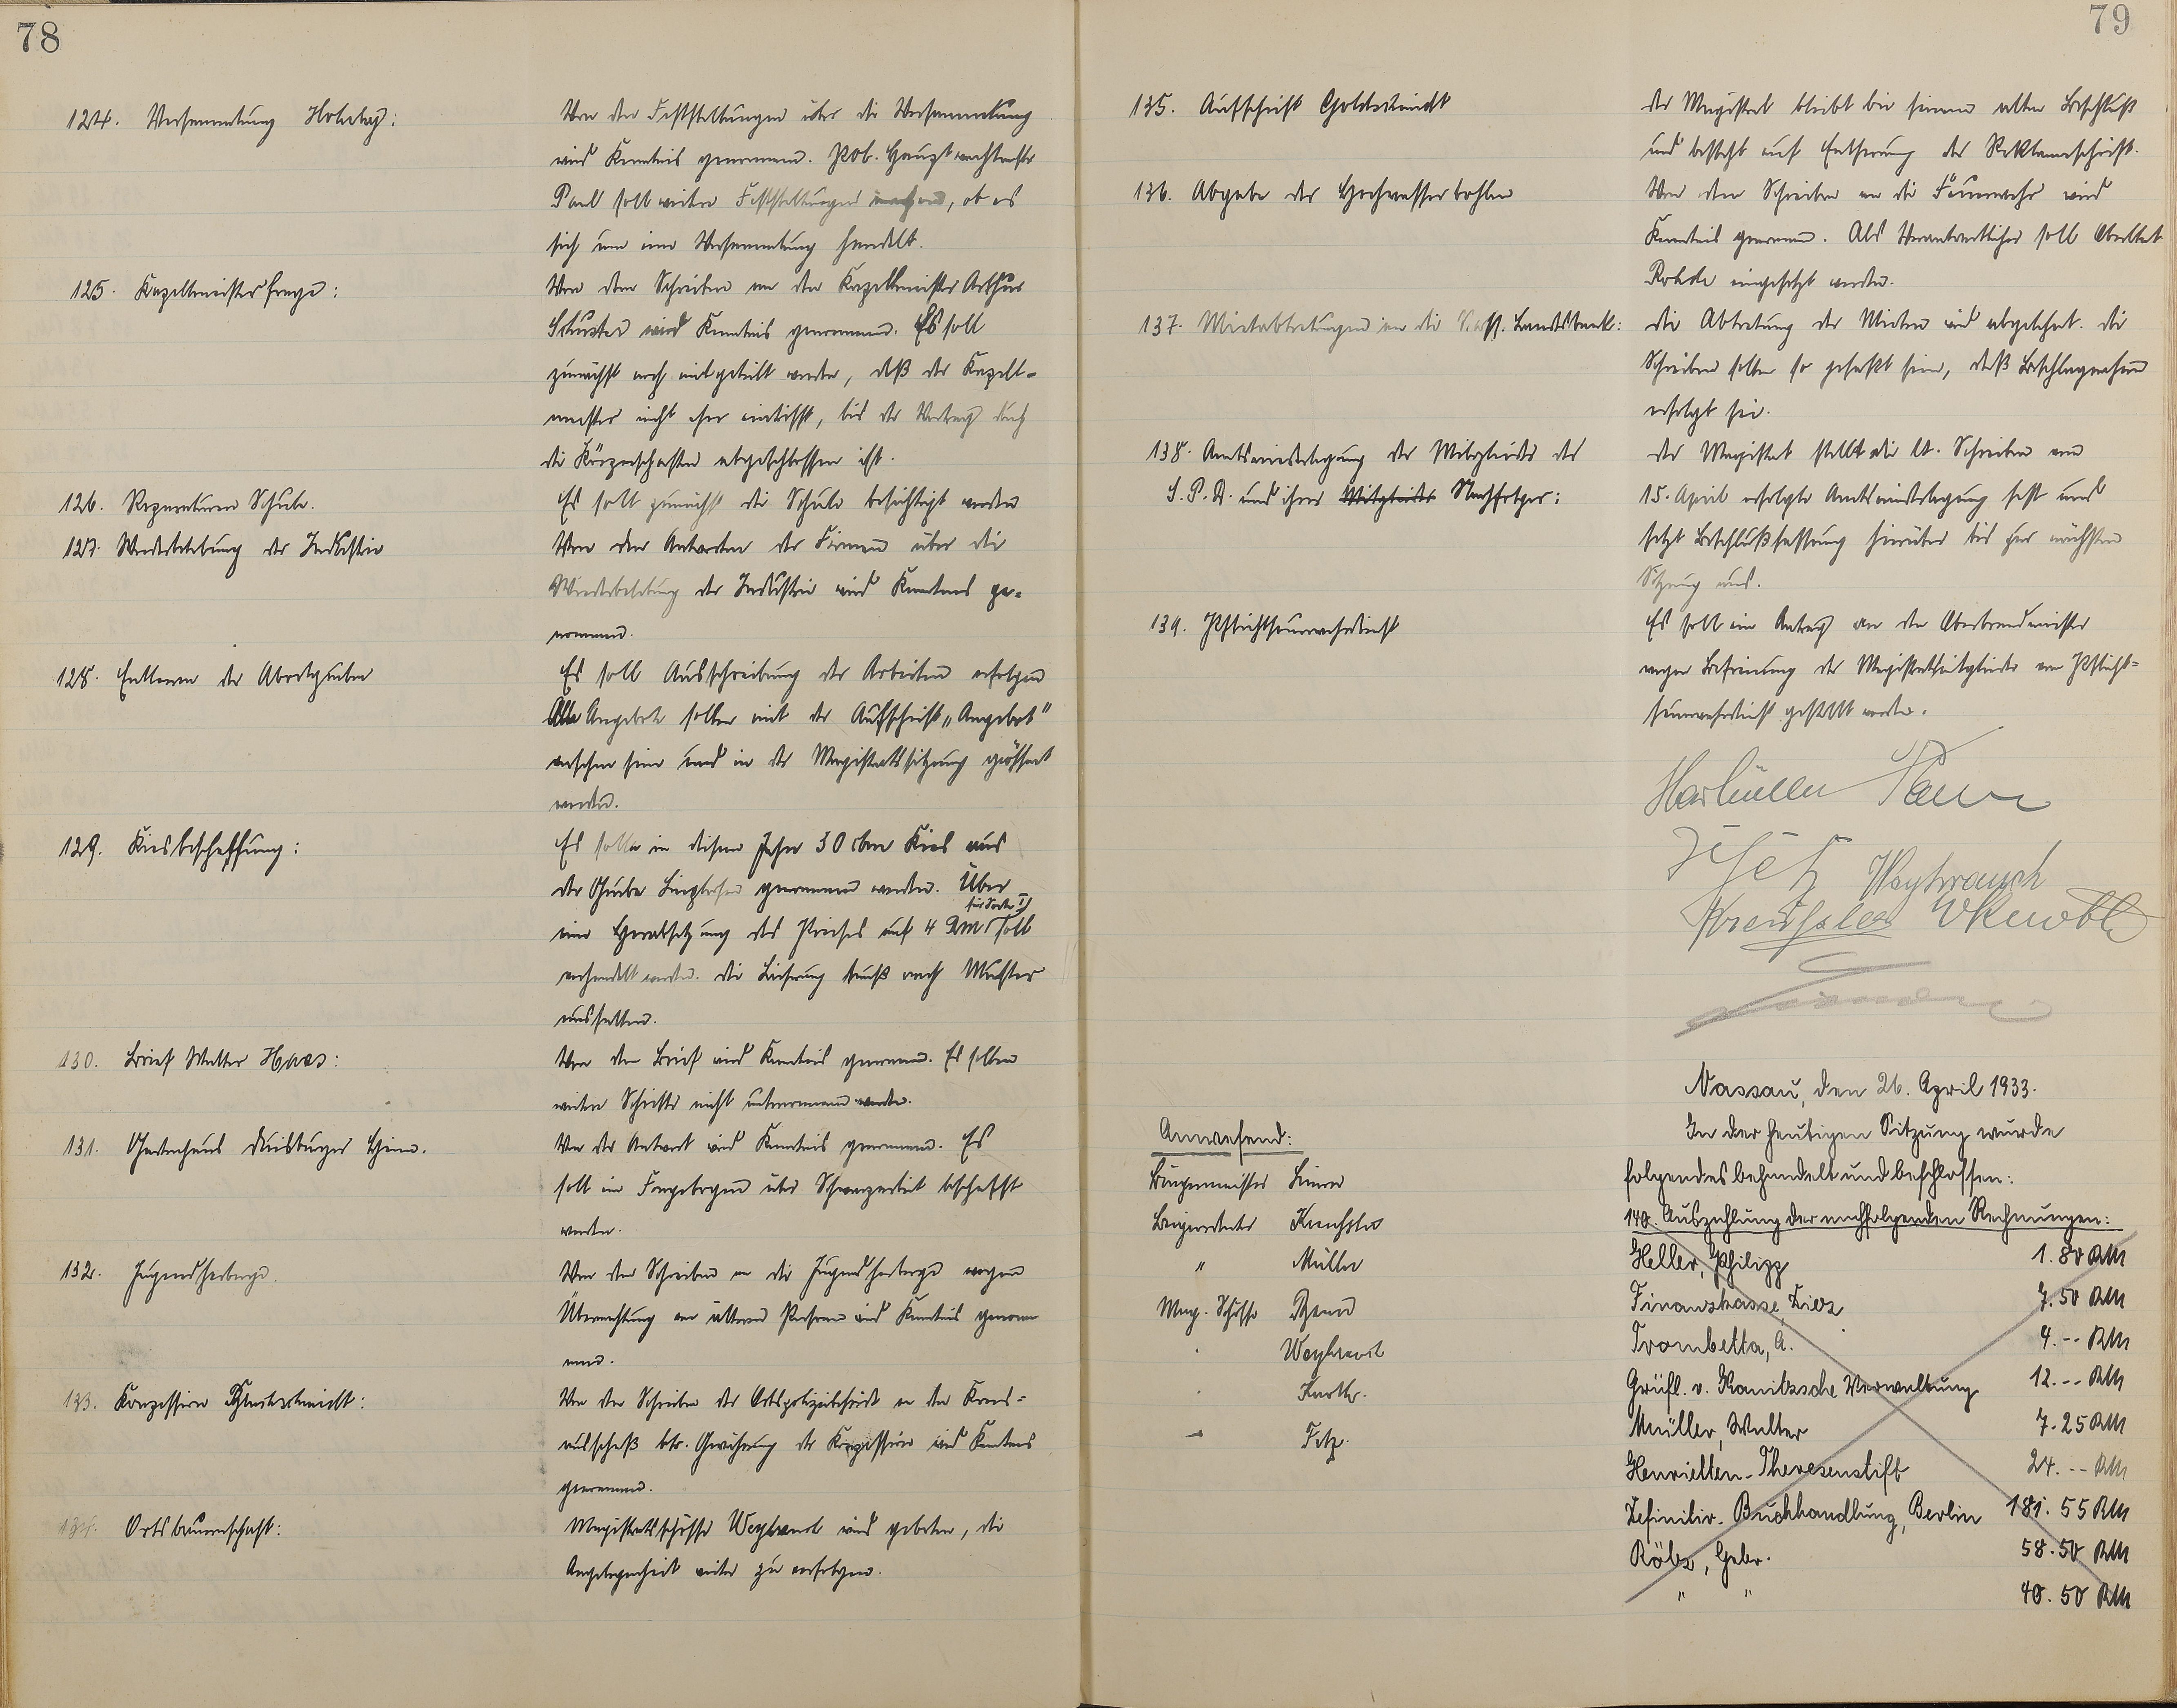 78
124. Versammlung Holertag:
Von den Feststellungen über die Versammlung
wird Kenntnis genommen. Pol. Hauptwachtmstr
Paul soll weitere Feststellungen machen, ob es
sich um eine Versammlung handelt.
125. Kapellmeisterfrage:
Von dem Schreiben an den Kapellmeister Arthur
Schuster wird Kenntnis genommen. Es soll
zunächst noch mitgeteilt werden, daß der Kapell-
meister nicht eher eintrifft, bis der Vertrag durch
die Körperschaften abgeschlossen ist.
126. Reparaturen Schule.
Es soll zunächst die Schule besichtigt werden
127. Wiederbelebung der Industrie
Von den Antworten der Firmen über die
Wiederbelebung der Industrie wird Kenntnis ge-
nommen.
128. Entleeren der Abortgruben
Es soll Ausschreibung der Arbeiten erfolgen
Alle Angebote sollen mit der Aufschrift „Angebot"
versehen sein und in der Magistratssitzung geöffnet
werden.
129. Kiesbeschaffung:
Es sollen in diesem Jahr 30 cbm Kies aus
der Grube genommen werden. Über
für Sorte I
eine Herabsetzung des Preises auf 4 RM soll
verhandelt werden. Die Lieferung muß nach Muster
ausfallen.
130. Brief Walter Haas:
Von dem Brief wird Kenntnis genommen. Es sollen
weitere Schritte nicht unternommen werden.
131. Gästehaus Duisburger Heim.
Von der Antwort wird Kenntnis genommen. Es
soll ein Fragebogen über Schwarzarbeit beschafft
werden.
132. Jugendherberge.
Von dem Schreiben an die Jugendherberge wegen
Übernachtung von älteren Personen wird Kenntnis genom
men.
133. Konzession
Von dem Schreiben der Ortspolizeibehörde an den Kreis-
ausschuß betr. Gewährung der Konzession wird Kenntnis
genommen.
134. Ortsbauernschaft:
Magistratsschöffe Weyhrauch wird gebeten, die
Angelegenheit weiter zu verfolgen.
79
135. Aufschrift Goldschmidt
Der Magistrat bleibt bei seinem alten Beschluß
und besteht auf Entfernung der Reklameschrift.
136. Abgabe der Hochwasserbohlen
Von dem Schreiben an die Feuerwehr wird
Kenntnis genommen. Als Verantwortlicher soll
Rohde eingesetzt werden.
137. Mietabtretungen an die Nass. Landesbank:
Die Abtretung der Mieten wird abgelehnt. Die
Schreiben sollen so gefaßt sein, daß Beschlagnahme
erfolgt sei.
138. Amtsniederlegung der Mitglieder der
S.P.D. und ihrer Mitglieder Nachfolger:
Der Magistrat stellt die lt. Schreiben vom
15. April erfolgte Amtsniederlegung fest und
setzt Beschlußfassung hierüber bis zur nächsten
Sitzung aus.
139. Pflichtfeuerwehrdienst
Es soll ein Antrag an den Oberbrandmeister
wegen Befreiung der Magistratsmitglieder vom Pflicht-
feuerwehrdienst gestellt werden.
Weyhrauch
Kreuzsler WKnoth
Nassau, den 26. April 1933.
In der heutigen Sitzung wurde
folgendes behandelt und beschlossen:
Anwesend:
Bürgermeister
Beigeordneter
" Müller
Mag. Schöffe
Weyhrauch
Knoth.
Fetz.
140. Auszahlung der nachfolgenden Rechnungen:
Heller, Philipp 1.80 RM
Finanzkasse, Diez 7.50 RM
Trombetta, A. 4.-- RM
Gräfl. v. Kanitzsche Verwaltung 12.-- RM
Müller, Walter 7.25 RM
Henrietten-Theresenstift 24.-- RM
Definitiv-Buchhandlung, Berlin 181.55 RM
Kölz, Gebr. 58.50 RM
" " 40.50 RM